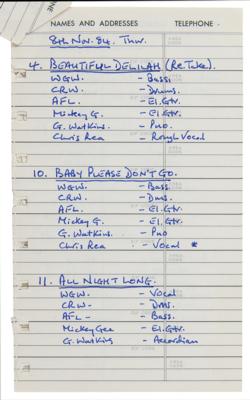 NAMES AND ADDRESSES TELEPHONE
8th Nov. 84. Thur.
4. BEAUTIFUL DELILAH (Re.Take).
WGW. - Bass.
CRW. - Drums.
AFL. - El.Gtr.
Mickey G. - El.Gtr.
G. Watkins. - Pno.
Chris Rea - Rough Vocal
10. BABY PLEASE DON'T GO.
WGW. - Bass.
CRW. - Dms.
AFL. - El.Gtr.
Mickey G. - El.Gtr.
G. Watkins - Pno
Chris Rea - Vocal *
11. ALL NIGHT LONG.
WGW. - Vocal
CRW. - Dms.
AFL - - Bass.
Mickey Gee - El.Gtr.
G. Watkins - Accordian